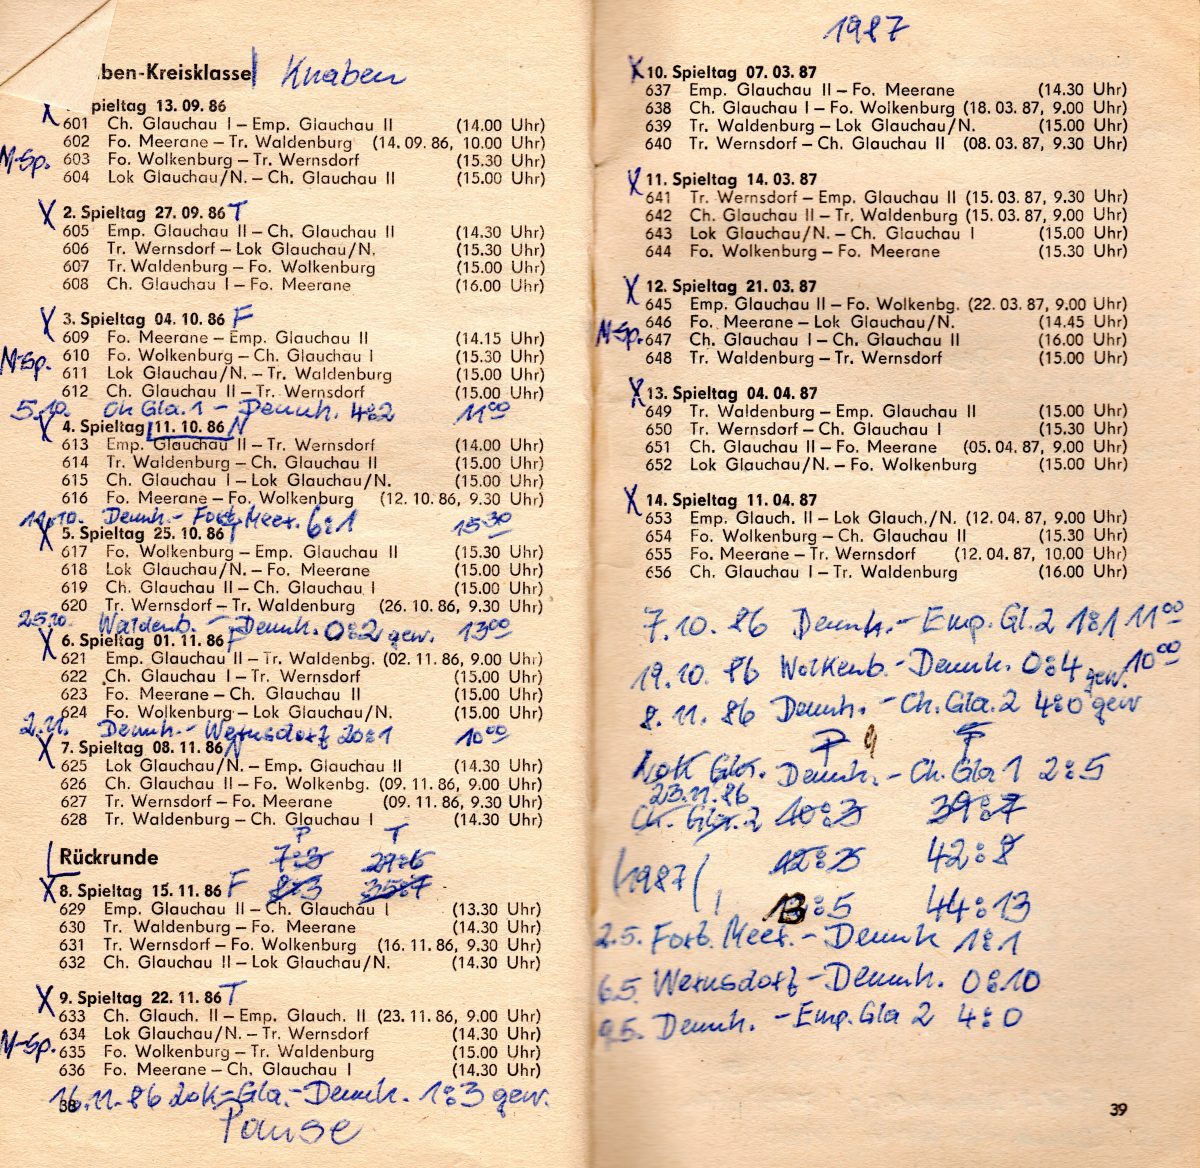 ben-Kreisklasse Knaben
pieltag 13.09.86
601 Ch. Glauchau I – Emp. Glauchau II (14.00 Uhr)
602 Fo. Meerane – Tr. Waldenburg (14.09.86, 10.00 Uhr)
M-Sp. 603 Fo. Wolkenburg – Tr. Wernsdorf (15.30 Uhr)
604 Lok Glauchau/N. – Ch. Glauchau II (15.00 Uhr)
X 2. Spieltag 27.09.86 T
605 Emp. Glauchau II – Ch. Glauchau II (14.30 Uhr)
606 Tr. Wernsdorf – Lok Glauchau/N. (15.30 Uhr)
607 Tr. Waldenburg – Fo. Wolkenburg (15.00 Uhr)
608 Ch. Glauchau I – Fo. Meerane (16.00 Uhr)
X 3. Spieltag 04.10.86 F
609 Fo. Meerane – Emp. Glauchau II (14.15 Uhr)
M-Sp. 610 Fo. Wolkenburg – Ch. Glauchau I (15.30 Uhr)
611 Lok Glauchau/N. – Tr. Waldenburg (15.00 Uhr)
612 Ch. Glauchau II – Tr. Wernsdorf (15.00 Uhr)
5.10. Ch Gla. 1 – Dennh. 4:2 11⁰⁰
X 4. Spieltag 11.10.86 N
613 Emp. Glauchau II – Tr. Wernsdorf (14.00 Uhr)
614 Tr. Waldenburg – Ch. Glauchau II (15.00 Uhr)
615 Ch. Glauchau I – Lok Glauchau/N. (15.00 Uhr)
616 Fo. Meerane – Fo. Wolkenburg (12.10.86, 9.30 Uhr)
Dennh. – Fort. Meer. 6:1 15³⁰
X 5. Spieltag 25.10.86
617 Fo. Wolkenburg – Emp. Glauchau II (15.30 Uhr)
618 Lok Glauchau/N. – Fo. Meerane (15.00 Uhr)
619 Ch. Glauchau II – Ch. Glauchau I (15.00 Uhr)
620 Tr. Wernsdorf – Tr. Waldenburg (26.10.86, 9.30 Uhr)
25.10. Waldenb. – Dennh. 0:2 gew. 13⁰⁰
X 6. Spieltag 01.11.86 F
621 Emp. Glauchau II – Tr. Waldenbg. (02.11.86, 9.00 Uhr)
622 Ch. Glauchau I – Tr. Wernsdorf (15.00 Uhr)
623 Fo. Meerane – Ch. Glauchau II (15.00 Uhr)
624 Fo. Wolkenburg – Lok Glauchau/N. (15.00 Uhr)
2.11. Dennh. – Wernsdorf 20:1 10⁰⁰
X 7. Spieltag 08.11.86 N
625 Lok Glauchau/N. – Emp. Glauchau II (14.30 Uhr)
626 Ch. Glauchau II – Fo. Wolkenbg. (09.11.86, 9.00 Uhr)
627 Tr. Wernsdorf – Fo. Meerane (09.11.86, 9.30 Uhr)
628 Tr. Waldenburg – Ch. Glauchau I (14.30 Uhr)
P T
Rückrunde 7:3 29:6
X 8. Spieltag 15.11.86 F 8:3 35:7
629 Emp. Glauchau II – Ch. Glauchau I (13.30 Uhr)
630 Tr. Waldenburg – Fo. Meerane (14.30 Uhr)
631 Tr. Wernsdorf – Fo. Wolkenburg (16.11.86, 9.30 Uhr)
632 Ch. Glauchau II – Lok Glauchau/N. (14.30 Uhr)
X 9. Spieltag 22.11.86 T
633 Ch. Glauch. II – Emp. Glauch. II (23.11.86, 9.00 Uhr)
634 Lok Glauchau/N. – Tr. Wernsdorf (14.30 Uhr)
M-Sp. 635 Fo. Wolkenburg – Tr. Waldenburg (15.00 Uhr)
636 Fo. Meerane – Ch. Glauchau I (14.30 Uhr)
16.11.86 Lok-Gla. – Dennh. 1:3 gew.
38
Pause
1987
X 10. Spieltag 07.03.87
637 Emp. Glauchau II – Fo. Meerane (14.30 Uhr)
638 Ch. Glauchau I – Fo. Wolkenburg (18.03.87, 9.00 Uhr)
639 Tr. Waldenburg – Lok Glauchau/N. (15.00 Uhr)
640 Tr. Wernsdorf – Ch. Glauchau II (08.03.87, 9.30 Uhr)
X 11. Spieltag 14.03.87
641 Tr. Wernsdorf – Emp. Glauchau II (15.03.87, 9.30 Uhr)
642 Ch. Glauchau II – Tr. Waldenburg (15.03.87, 9.00 Uhr)
643 Lok Glauchau/N. – Ch. Glauchau I (15.00 Uhr)
644 Fo. Wolkenburg – Fo. Meerane (15.30 Uhr)
X 12. Spieltag 21.03.87
645 Emp. Glauchau II – Fo. Wolkenbg. (22.03.87, 9.00 Uhr)
646 Fo. Meerane – Lok Glauchau/N. (14.45 Uhr)
M-Sp. 647 Ch. Glauchau I – Ch. Glauchau II (16.00 Uhr)
648 Tr. Waldenburg – Tr. Wernsdorf (15.00 Uhr)
X 13. Spieltag 04.04.87
649 Tr. Waldenburg – Emp. Glauchau II (15.00 Uhr)
650 Tr. Wernsdorf – Ch. Glauchau I (15.30 Uhr)
651 Ch. Glauchau II – Fo. Meerane (05.04.87, 9.00 Uhr)
652 Lok Glauchau/N. – Fo. Wolkenburg (15.00 Uhr)
X 14. Spieltag 11.04.87
653 Emp. Glauch. II – Lok Glauch./N. (12.04.87, 9.00 Uhr)
654 Fo. Wolkenburg – Ch. Glauchau II (15.30 Uhr)
655 Fo. Meerane – Tr. Waldenburg (12.04.87, 10.00 Uhr)
656 Ch. Glauchau I – Tr. Waldenburg (16.00 Uhr)
7.10.86 Dennh. – Emp. Gl. 2 1:1 11⁰⁰
19.10.86 Wolkenb. – Dennh. 0:4 gew. 10⁰⁰
8.11.86 Dennh. – Ch. Gla. 2 4:0 gew
P T
Lok Gla. Dennh. – Ch. Gla 1 2:5
23.11.86
Ch. Gla. 2 10:3 39:7
12:3 42:8
(1987)
13:5 44:13
2.5. Fort. Meer. – Dennh 1:1
6.5. Wernsdorf – Dennh. 0:10
9.5. Dennh. – Emp. Gla 2 4:0
39